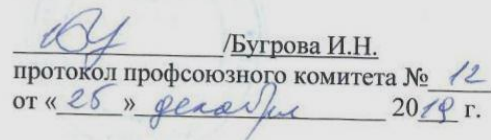 /Бугрова И.Н.
протокол профсоюзного комитета № 12
от « 25 » декабря 2019 г.